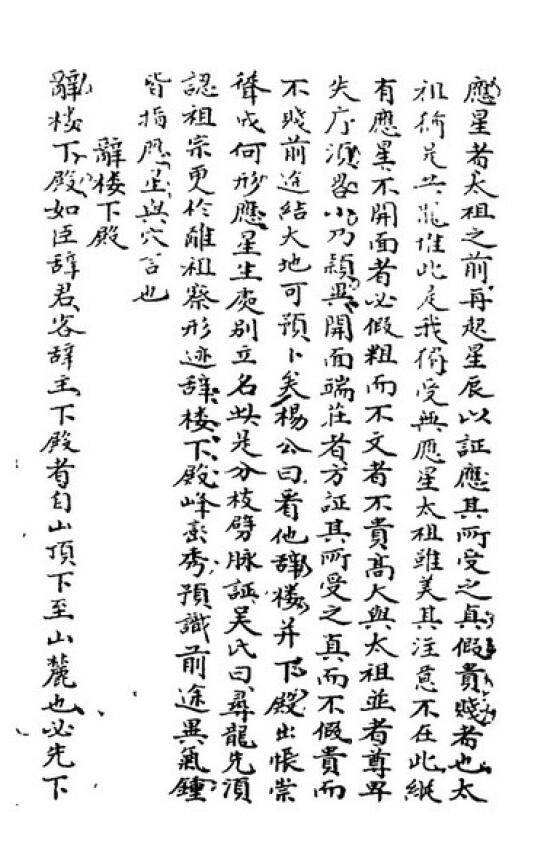 應星者太祖之前再起星辰以証應其所受之真假貴賤者也太
祖猶是共龍堆此是我獨受與應星太祖雖美其注意不在此縱
有應星不開面者必假粗而不文者不貴高大與太祖並者尊卑
失序須畧小乃穎異開面端莊者方証其所受之真而不假貴而
不賤前途結大地可預卜矣楊公曰看他辞楼并下殿出帳
聳成何形應星生處別立名此是分枝劈脉証吳氏曰尋龍先須
認祖宗更於離祖察形迹辞楼下殿峰巒秀預識前途異氣鍾
皆指應星與穴言也
辭樓下殿
辭楼下殿如臣辞君客辞主下殿者自山頂下至山麓也必先下